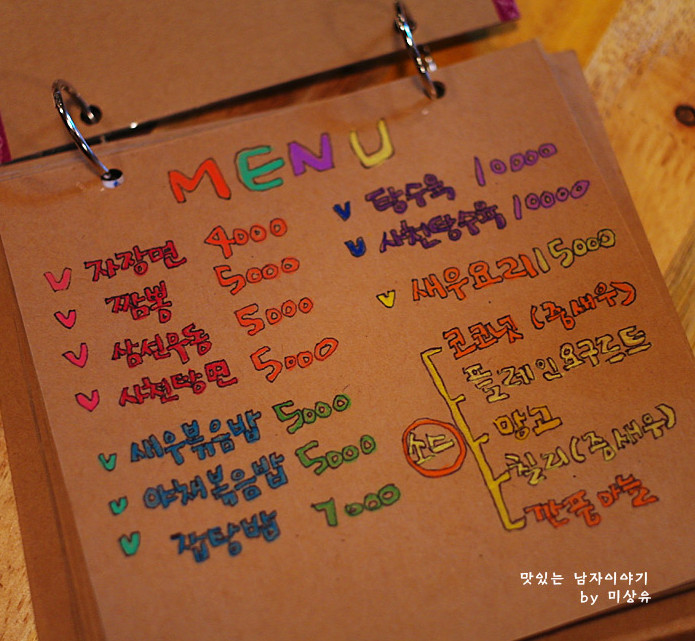 MENU
자장면 4000
짬뽕 5000
삼선우동 5000
사천탕면 5000
새우볶음밥 5000
야채볶음밥 5000
잡탕밥 7000
탕수육 10000
사천탕수육 10000
새우요리 15000
소스
코코넛 (중새우)
플레인요구르트
망고
칠리 (중새우)
깐풍마늘
맛있는 남자이야기
by 미상유